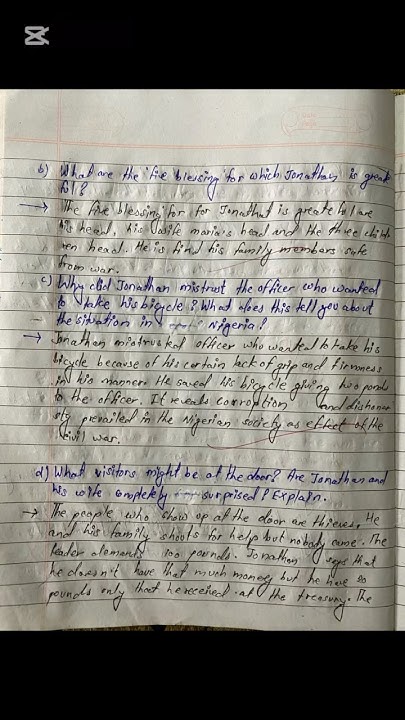 b) What are the five blessing for which Jonathan is greate
ful?
→ The five blessing for for Jonathat is greateful are
his head, his wife maria's head and the three child
ren head. He is find his family members safe
from war.
c) Why did Jonathan mistrust the officer who wanted
to take his bicycle? What does this tell you about
the situation in Nigeria?
→ Jonathan mistrusted officer who wanted to take his
bicycle because of his certain lack of grip and firmness
in his manner. He saved his bicycle giving two ponds
to the officer. It reveals corroption and dishone
sity prevailed in the Nigerian society as effect of the
civil war.
d) What visitors might be at the door? Are Jonathan and
his wife completely surprised? Explain.
→ The people who show up at the door are thieves. He
and his family shoots for help but nobody came. The
leader demends 100 pounds. Jonathan says that
he doesn't have that much money but he have 20
pounds only that he received at the treasury. The